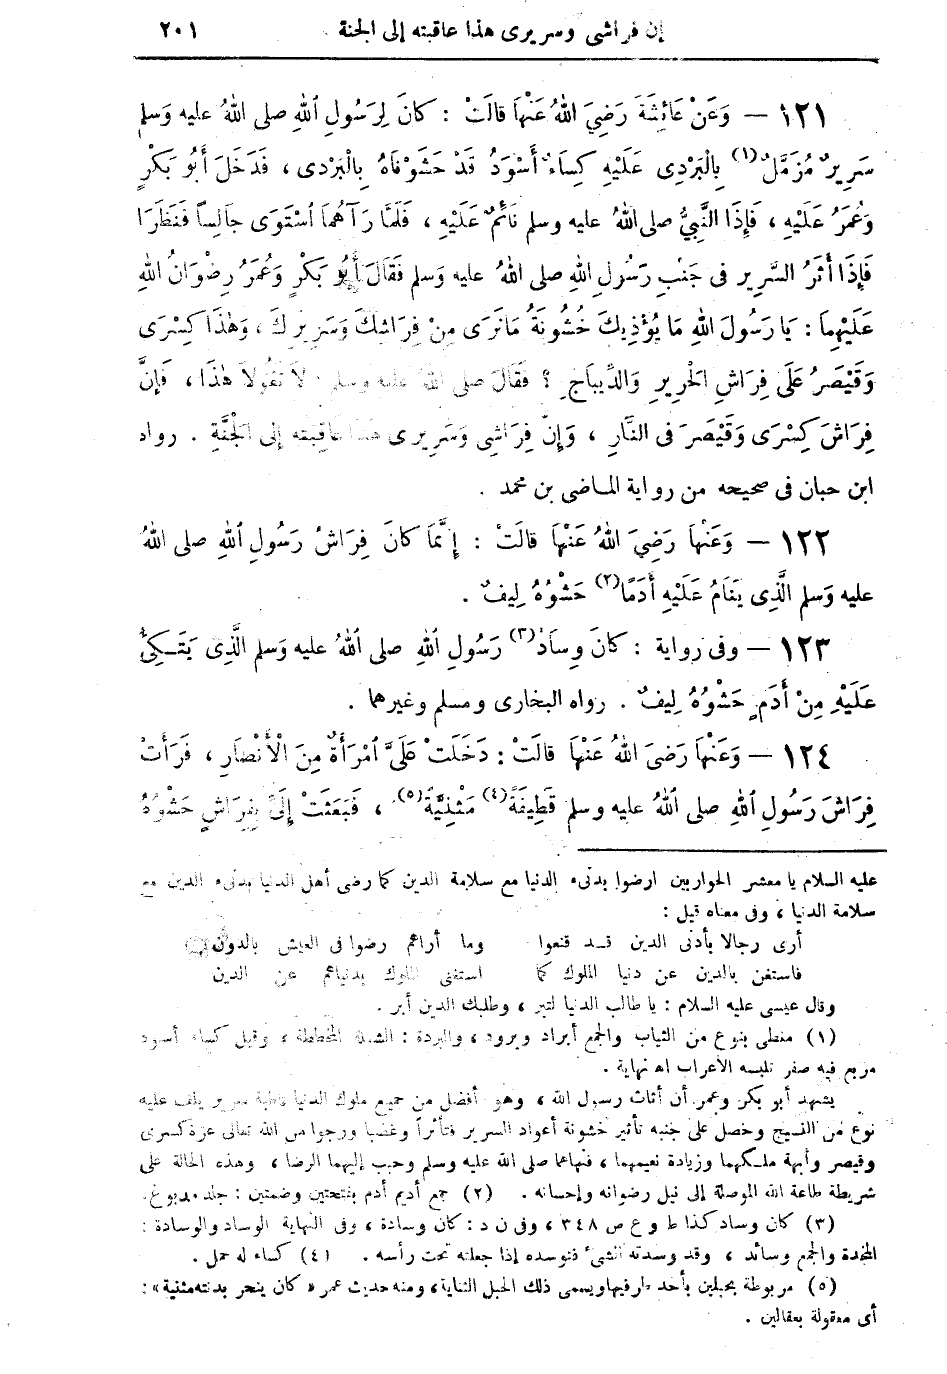 إن فراشى وسريرى هذا عاقبته إلى الجنة ٢٠١
١٢١ — وَعَنْ عَائِشَةَ رَضِيَ اللهُ عَنْهَا قالَتْ : كانَ لِرَسُولِ ٱللهِ صلى اللهُ عليه وَسلم
سَرِيرٌ مُزَمَّلٌ(١) بِالْبَرْدِى عَلَيْهِ كِسَاءٌ أَسْوَدُ قَدْ حَشَوْنَاهُ بِالْبَرْدِى ، فَدَخَلَ أَبُو بَكْرٍ
وَعُمَرُ عَلَيْهِ ، فَإِذَا النَّبِيُّ صلى اللهُ عليه وسلم نَائِمٌ عَلَيْهِ ، فَلَمَّا رَآهُمَا ٱسْتَوَى جالِساً فَنَظَرَا
فَإِذَا أَثَرُ السَّرِيرِ فى جَنْبِ رَسُولِ اللهِ صلى اللهُ عليه وَسلم فَقَالَ أَبُو بَكْرٍ وَعُمَرُ رِضْوَانُ اللهِ
عَلَيْهِمَا : يَا رَسُولَ اللهِ مَا يُؤْذِيكَ خُشُونَةُ مَا نَرَى مِنْ فِرَاشِكَ وَسَرِيرِكَ ، وَهٰذَا كِسْرَى
وَقَيْصَرُ عَلَى فِرَاشِ الْحَرِيرِ وَالدِّيبَاجِ ؟ فَقَالَ صلى اللهُ عليه وسلم : لاَ تَقُولاَ هٰذَا ، فَإِنَّ
فِرَاشَ كِسْرَى وَقَيْصَرَ فى النَّارِ ، وَإِنَّ فِرَاشِى وَسَرِيرِى هٰذَا عَاقِبَتُهُ إِلَى الْجَنَّةِ . رواه
ابن حبان فى صحيحه من رواية الماضى بن محمد .
١٢٢ — وَعَنْهَا رَضِيَ اللهُ عَنْهَا قالَتْ : إِنَّمَا كانَ فِرَاشُ رَسُولِ ٱللهِ صلى اللهُ
عليه وَسلم الَّذِى يَنَامُ عَلَيْهِ أَدَمًا(٢) حَشْوُهُ لِيفٌ .
١٢٣ — وفى رواية : كانَ وِسادُ(٣) رَسُولِ ٱللهِ صلى اللهُ عليه وَسلم الَّذِى يَتَّكِئُ
عَلَيْهِ مِنْ أَدَمٍ حَشْوُهُ لِيفٌ . رواه البخارى ومسلم وغيرهما .
١٢٤ — وَعَنْهَا رَضىَ اللهُ عَنْهَا قالَتْ : دَخَلَتْ عَلَىَّ ٱمْرَأَةٌ مِنَ الْأَنْصَارِ ، فَرَأَتْ
فِرَاشَ رَسُولِ اللهِ صلى اللهُ عليه وسلم قَطِيفَةً(٤) مَثْنِيَّةً(٥) ، فَبَعَثَتْ إِلَىَّ بِفِرَاشٍ حَشْوُهُ
عليه السلام يا معشر الحواريين ارضوا بدنىء الدنيا مع سلامة الدين كما رضى أهل الدنيا بدنىء الدين مع
سلامة الدنيا ، وفى معناه قيل :
أرى رجالا بأدنى الدين قد قنعوا وما أراهم رضوا فى العيش بالدون
فاستغن بالدين عن دنيا الملوك كما استغنى الملوك بدنياهم عن الدين
وقال عيسى عليه السلام : يا طالب الدنيا لتبر ، وطلبك الدين أبر .
(١) مغطى بنوع من الثياب والجمع أبراد وبرود ، والبردة : الشملة المخططة ، وقيل كساء أسود
مربع فيه صفر تلبسه الأعراب اه نهاية .
يشهد أبو بكر وعمر أن أثاث رسول الله ، وهو أفضل من جميع ملوك الدنيا قاطبة سرير يلف عليه
نوع من النسيج وحصل على جنبه تأثير خشونة أعواد السرير فتأثرا وغضبا ورجوا من الله تعالى عزة كسرى
وقيصر وأبهة ملكهما وزيادة نعيمهما ، فنهاهما صلى الله عليه وسلم وحبب إليهما الرضا ، وهذه الحالة على
شريطة طاعة الله الموصلة إلى نيل رضوانه وإحسانه . (٢) جمع أديم أدم بفتحتين وضمتين : جلد مدبوغ .
(٣) كان وساد كذا ط وع ص ٣٤٨ ، وفى ن د : كان وسادة ، وفى النهاية الوساد والوسادة :
المخدة والجمع وسائد ، وقد وسدته الشىء فتوسده إذا جعلته تحت رأسه . (٤) كساء له خمل .
(٥) مربوطة بحبلين بأحد طرفيها ويسمى ذلك الحبل الثناية ، ومنه حديث عمر « كان ينحر بدنته مثنية » :
أى معقولة بعقالين .